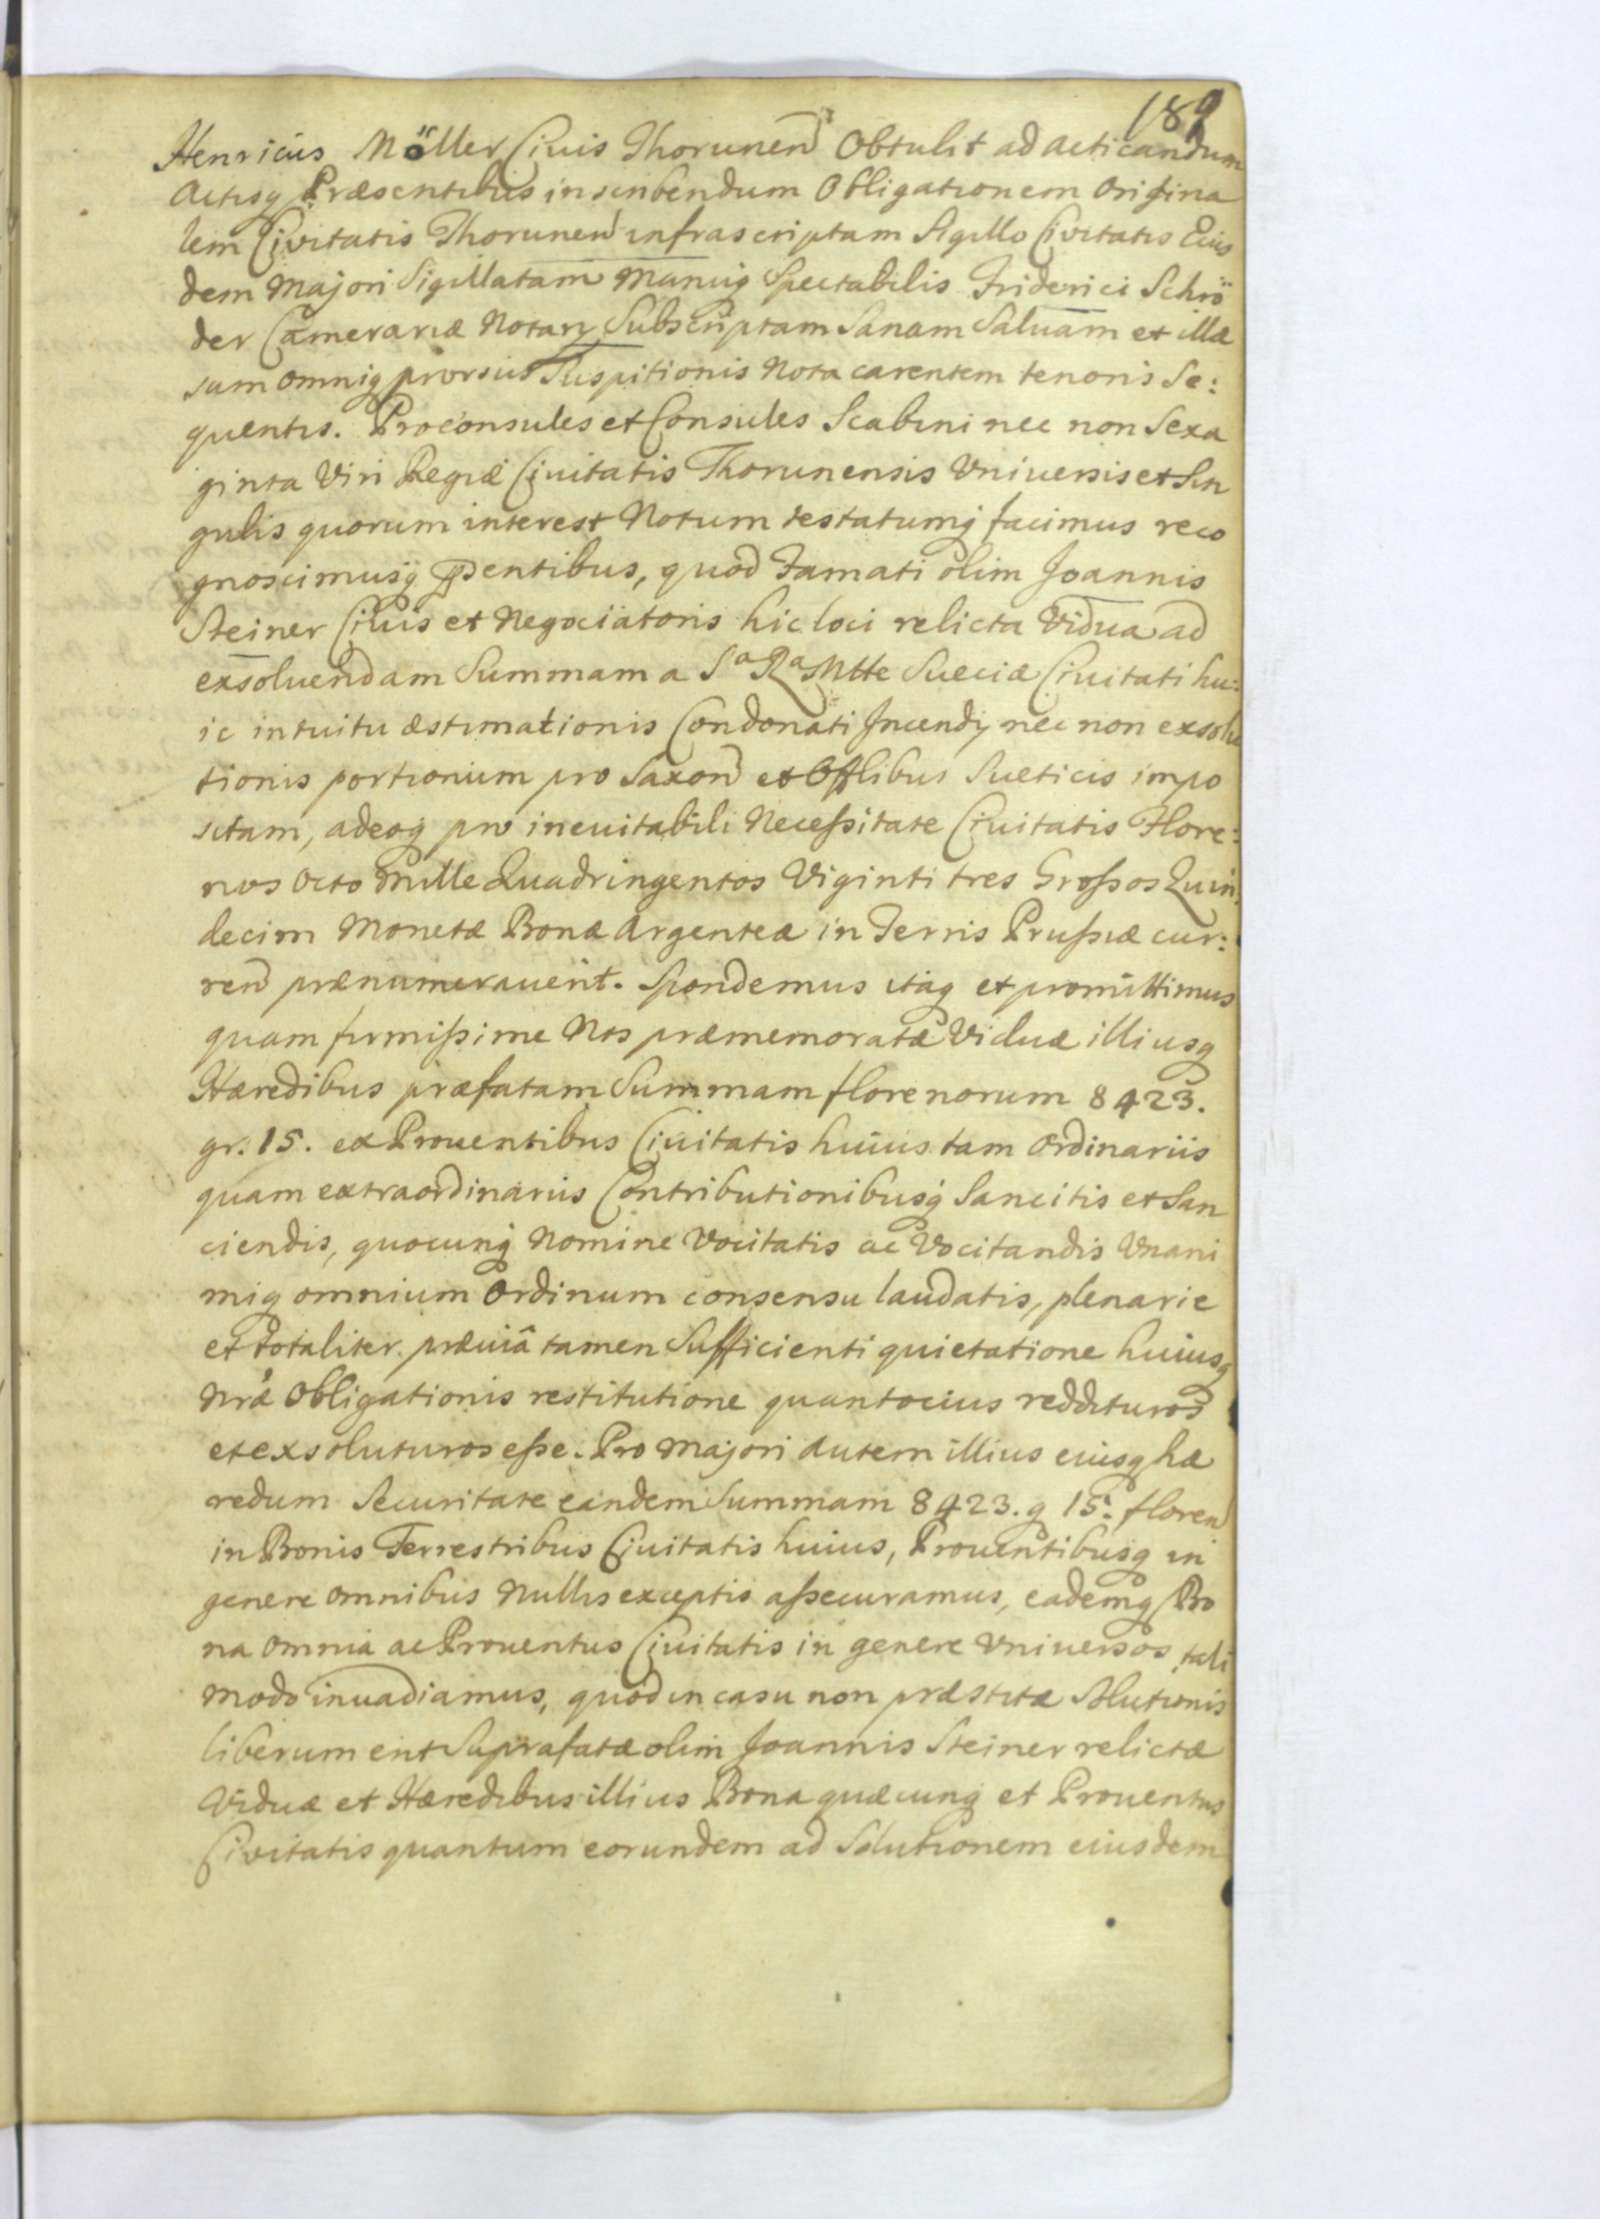 189
Henricus Möller Civis Thorunen Obtulit ad acticandum
Actisq Præsentibus inscribendum Obligationem Origina
lem Civitatis Thorunen infrascriptam Sigillo Civitatis Eius
dem Majori Sigillatam Manuq Spectabilis Friderici Schrö
der Camerariæ Notarij Subscriptam Sanam Saluam et illæ
sam omniq prorsus Suspitionis Nota carentem tenoris Se:
quentis. Proconsules et Consules Scabini nec non Sexa
ginta Viri Regiæ Civitatis Thorunensis Universis et Sin
gulis quorum interest Notum testatumq facimus reco
gnoscimusq pñentibus, quod Famati olim Joannis
Steiner Civis et Negociatoris hic loci relicta Vidua ad
exsoluendam Summam a Sa Ra Mtte Sueciæ Civitati hu:
ic intuitu æstimationis Condonati Incendij nec non exsolu
tionis portionum pro Saxon et Offlibus Sueticis impo
sitam, adeoq pro ineuitabili Necessitate Civitatis Flore:
nos Octo Mille Quadringentos Viginti tres Grossos Quin
decim Monetæ Bonæ Argenteæ in Terris Prussiæ cur:
ren prænumerauerit. Spondemus itaq et promittimus
quam firmissime Nos præmemoratæ Viduæ illiusq
Hæredibus præfatam Summam florenorum 8423.
gr. 15. ex Prouentibus Civitatis huius tam Ordinariis
quam extraordinariis Contributionibusq Sancitis et San
ciendis, quocunq Nomine Vocitatis ac Vocitandis Vnani
miq omnium Ordinum consensu laudatis, plenarie
et totaliter præuiâ tamen Sufficienti quietatione huiusq
Nræ Obligationis restitutione quantocius reddituros
et exsoluturos esse. Pro Majori autem illius eiusq hæ
redum Securitate eandem Summam 8423. g 15. floren
in Bonis Terrestribus Civitatis huius, Prouentibusq in
genere omnibus Nullis exceptis assecuramus, eademq Bo
na omnia ac Prouentus Civitatis in genere Vniuersos tali
modo inuadiamus, quod in casu non præstitæ Solutionis
liberum erit Suprafatæ olim Joannis Steiner relictæ
Viduæ et Hæredibus illius Bona quæcunq et Prouentus
Civitatis quantum eorundem ad Solutionem eiusdem